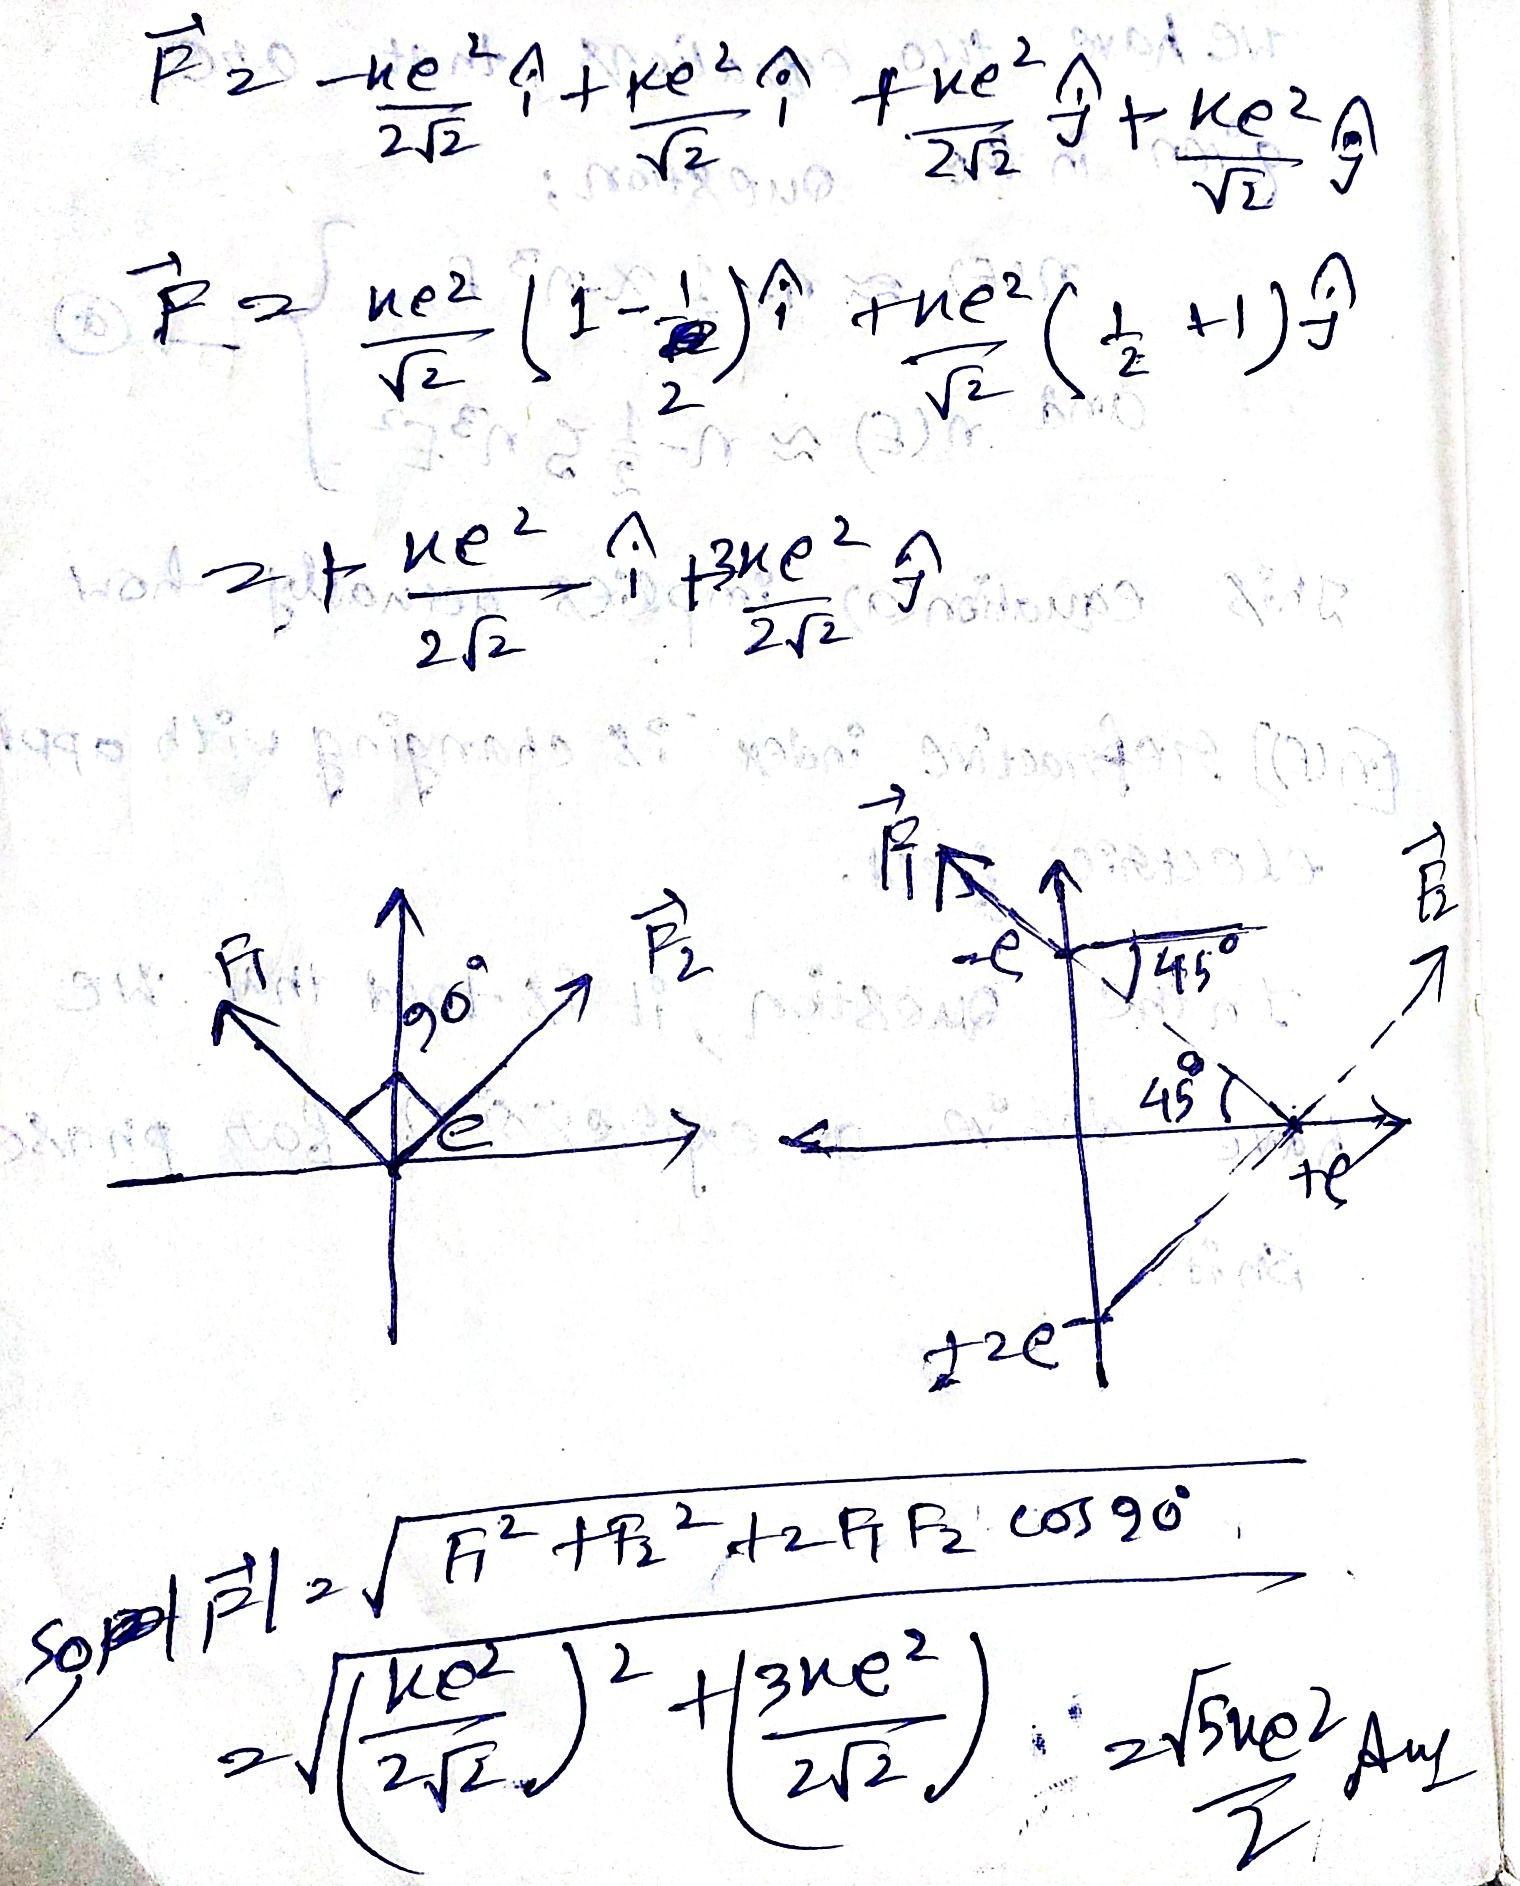 F⃗ = -ke²/2√2 î + ke²/√2 î + ke²/2√2 ĵ + ke²/√2 ĵ
F⃗ = ke²/√2 (1 - 1/2) î + ke²/√2 (1/2 + 1) ĵ
= + ke²/2√2 î + 3ke²/2√2 ĵ
F₁ 90° F⃗₂ e
F⃗₁ -e 45° F⃗₂
45° +e
+2e
So, |F⃗| = √(F₁² + F₂² + 2F₁F₂ cos90°)
= √((ke²/2√2)² + (3ke²/2√2) = √5ke²/2 Ans